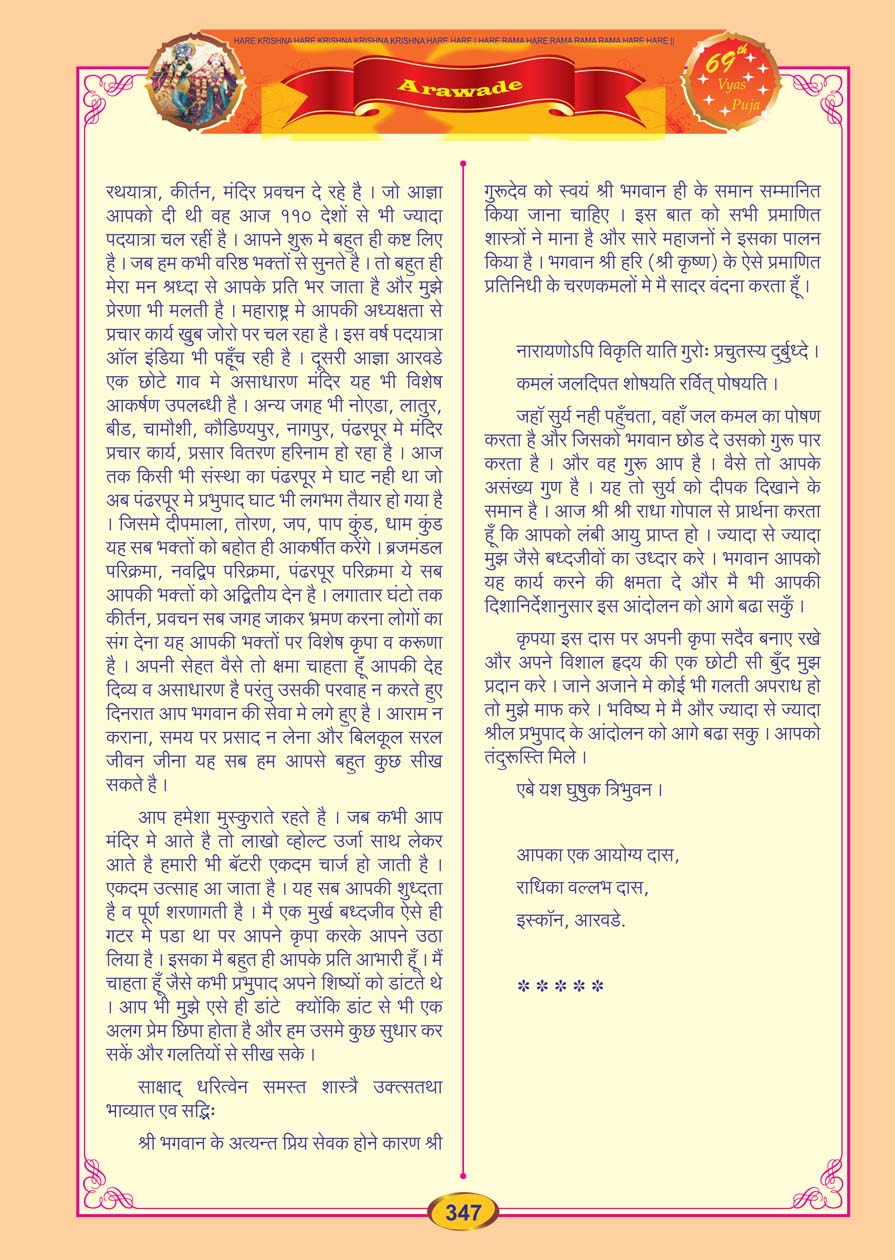 HARE KRISHNA HARE KRISHNA KRISHNA KRISHNA HARE HARE | HARE RAMA HARE RAMA RAMA RAMA HARE HARE ||
Arawade
69th
Vyas
Puja
रथयात्रा, कीर्तन, मंदिर प्रवचन दे रहे है । जो आज्ञा
आपको दी थी वह आज ११० देशों से भी ज्यादा
पदयात्रा चल रहीं है । आपने शुरू मे बहुत ही कष्ट लिए
है । जब हम कभी वरिष्ठ भक्तों से सुनते है । तो बहुत ही
मेरा मन श्रध्दा से आपके प्रति भर जाता है और मुझे
प्रेरणा भी मलती है । महाराष्ट्र मे आपकी अध्यक्षता से
प्रचार कार्य खुब जोरो पर चल रहा है । इस वर्ष पदयात्रा
ऑल इंडिया भी पहूँच रही है । दूसरी आज्ञा आरवडे
एक छोटे गाव मे असाधारण मंदिर यह भी विशेष
आकर्षण उपलब्धी है । अन्य जगह भी नोएडा, लातुर,
बीड, चामौशी, कौडिण्यपुर, नागपुर, पंढरपूर मे मंदिर
प्रचार कार्य, प्रसार वितरण हरिनाम हो रहा है । आज
तक किसी भी संस्था का पंढरपूर मे घाट नही था जो
अब पंढरपूर मे प्रभुपाद घाट भी लगभग तैयार हो गया है
। जिसमे दीपमाला, तोरण, जप, पाप कुंड, धाम कुंड
यह सब भक्तों को बहोत ही आकर्षीत करेंगे । ब्रजमंडल
परिक्रमा, नवद्विप परिक्रमा, पंढरपूर परिक्रमा ये सब
आपकी भक्तों को अद्वितीय देन है । लगातार घंटो तक
कीर्तन, प्रवचन सब जगह जाकर भ्रमण करना लोगों का
संग देना यह आपकी भक्तों पर विशेष कृपा व करूणा
है । अपनी सेहत वैसे तो क्षमा चाहता हूँ आपकी देह
दिव्य व असाधारण है परंतु उसकी परवाह न करते हुए
दिनरात आप भगवान की सेवा मे लगे हुए है । आराम न
कराना, समय पर प्रसाद न लेना और बिलकूल सरल
जीवन जीना यह सब हम आपसे बहुत कुछ सीख
सकते है ।
आप हमेशा मुस्कुराते रहते है । जब कभी आप
मंदिर मे आते है तो लाखो व्होल्ट उर्जा साथ लेकर
आते है हमारी भी बॅटरी एकदम चार्ज हो जाती है ।
एकदम उत्साह आ जाता है । यह सब आपकी शुध्दता
है व पूर्ण शरणागती है । मै एक मुर्ख बध्दजीव ऐसे ही
गटर मे पडा था पर आपने कृपा करके आपने उठा
लिया है । इसका मै बहुत ही आपके प्रति आभारी हूँ । मैं
चाहता हूँ जैसे कभी प्रभुपाद अपने शिष्यों को डांटते थे
। आप भी मुझे एसे ही डांटे क्योंकि डांट से भी एक
अलग प्रेम छिपा होता है और हम उसमे कुछ सुधार कर
सकें और गलतियों से सीख सके ।
साक्षाद् धरित्वेन समस्त शास्त्रै उक्त्सतथा
भाव्यात एव सद्भिः
श्री भगवान के अत्यन्त प्रिय सेवक होने कारण श्री
गुरूदेव को स्वयं श्री भगवान ही के समान सम्मानित
किया जाना चाहिए । इस बात को सभी प्रमाणित
शास्त्रों ने माना है और सारे महाजनों ने इसका पालन
किया है । भगवान श्री हरि (श्री कृष्ण) के ऐसे प्रमाणित
प्रतिनिधी के चरणकमलों मे मै सादर वंदना करता हूँ ।
नारायणोऽपि विकृति याति गुरोः प्रचुतस्य दुर्बुध्दे ।
कमलं जलदिपत शोषयति रर्वित् पोषयति ।
जहॉ सुर्य नही पहुँचता, वहाँ जल कमल का पोषण
करता है और जिसको भगवान छोड दे उसको गुरू पार
करता है । और वह गुरू आप है । वैसे तो आपके
असंख्य गुण है । यह तो सुर्य को दीपक दिखाने के
समान है । आज श्री श्री राधा गोपाल से प्रार्थना करता
हूँ कि आपको लंबी आयु प्राप्त हो । ज्यादा से ज्यादा
मुझ जैसे बध्दजीवों का उध्दार करे । भगवान आपको
यह कार्य करने की क्षमता दे और मै भी आपकी
दिशानिर्देशानुसार इस आंदोलन को आगे बढा सकुँ ।
कृपया इस दास पर अपनी कृपा सदैव बनाए रखे
और अपने विशाल हृदय की एक छोटी सी बुँद मुझ
प्रदान करे । जाने अजाने मे कोई भी गलती अपराध हो
तो मुझे माफ करे । भविष्य मे मै और ज्यादा से ज्यादा
श्रील प्रभुपाद के आंदोलन को आगे बढा सकु । आपको
तंदुरूस्ति मिले ।
एबे यश घुषुक त्रिभुवन ।
आपका एक आयोग्य दास,
राधिका वल्लभ दास,
इस्कॉन, आरवडे.
*****
347